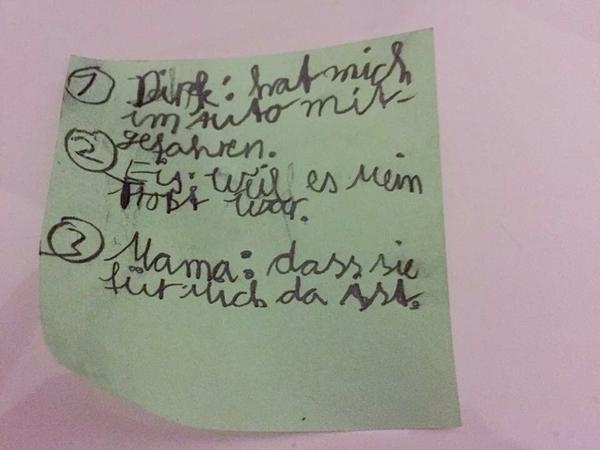 ① Dirk: hat mich
im Auto mit-
gefahren.
② Eis. weil es mein
war.
③ Mama: dass sie
für mich da ist.